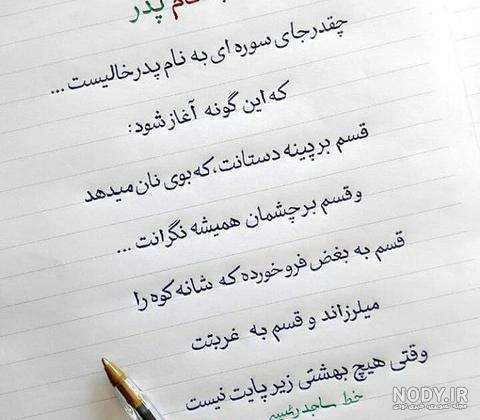 نام پدر
چقدر جای سوره ای به نام پدر خالیست ...
که این گونه آغاز شود:
قسم بر پینه دستانت، که بوی نان میدهد
و قسم بر چشمان همیشه نگرانت ...
قسم به بغض فروخورده که شانه کوه را
میلرزاند و قسم به غربتت
وقتی هیچ بهشتی زیر پایت نیست
خط ساجد رئیسی
NODY.IR
مجله تصویری خبری نودی